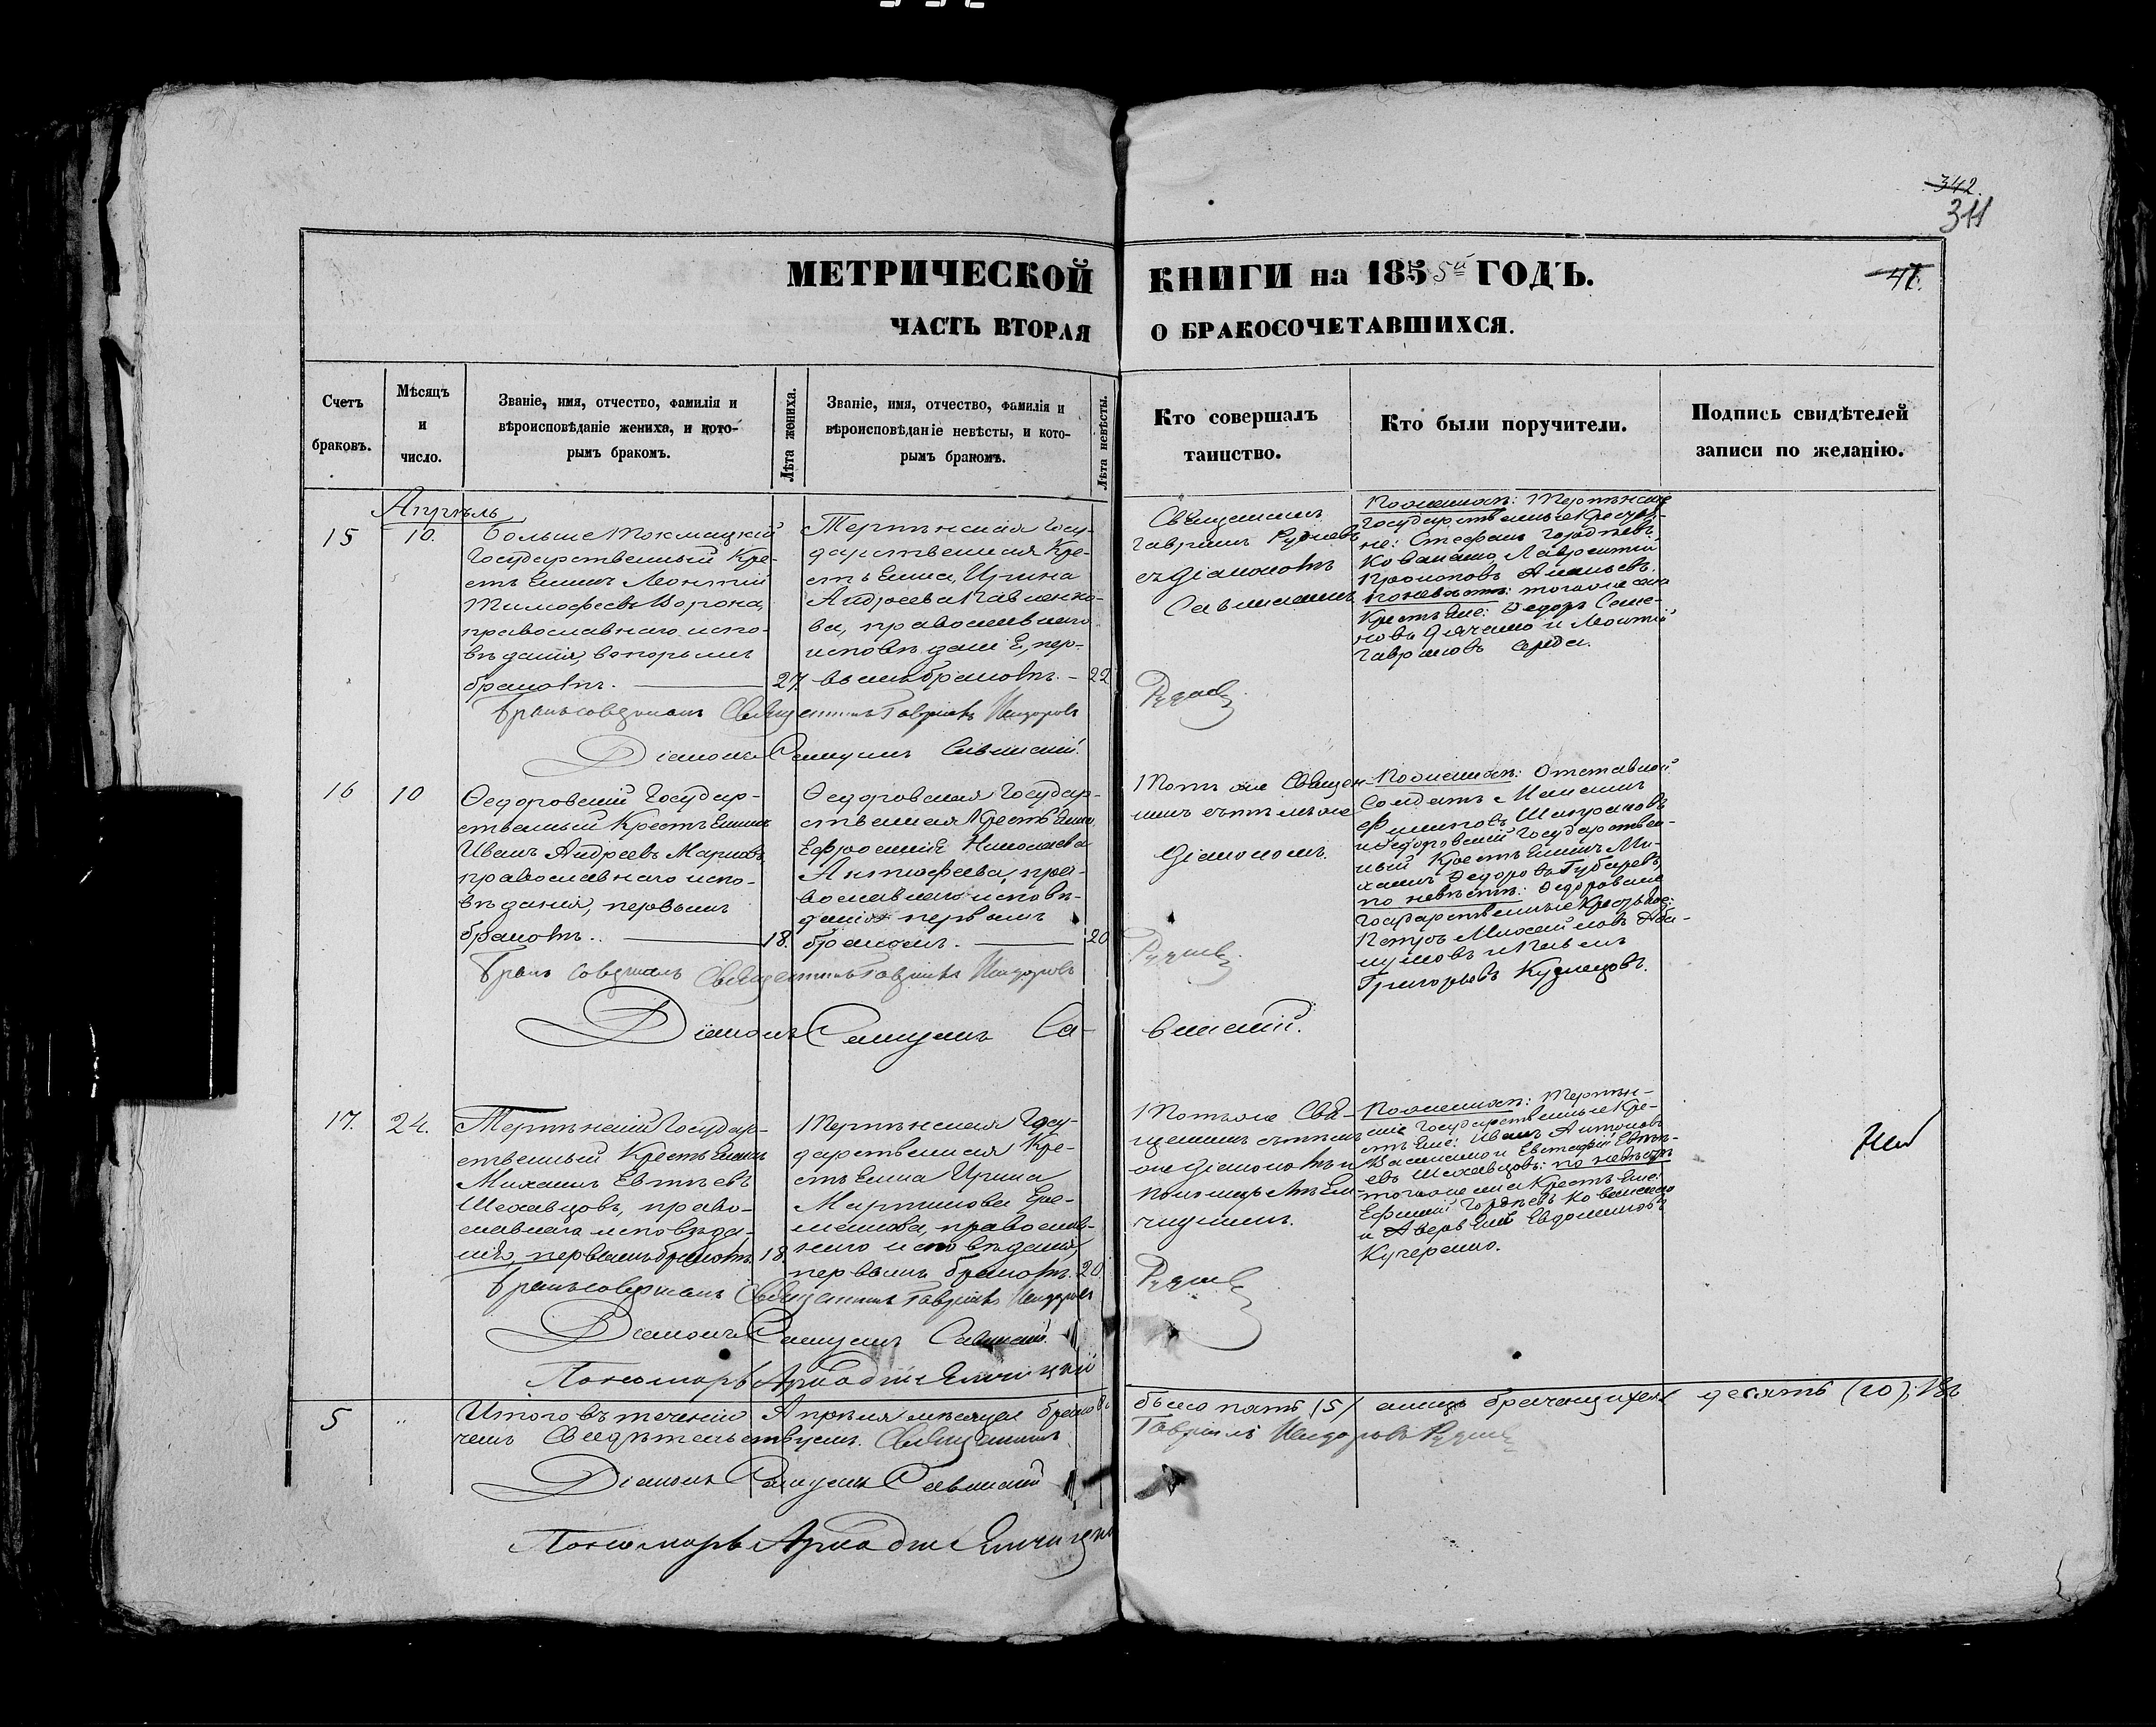 342.
311
МЕТРИЧЕСКОЙ КНИГИ на 1855й ГОДЪ.
41.
ЧАСТЬ ВТОРАЯ О БРАКОСОЧЕТАВШИХСЯ.
Счетъ браковъ.
Мѣсяцъ и число.
Званіе, имя, отчество, фамилія и
вѣроисповѣданіе жениха, и кото-
рымъ бракомъ.
Лѣта жениха.
Званіе, имя, отчество, фамилія и
вѣроисповѣданіе невѣсты, и кото-
рымъ бракомъ.
Лѣта невѣсты.
Кто совершалъ
таинство.
Кто были поручители.
Подпись свидѣтелей
записи по желанію.
Апрѣль
15
10.
Больше Токмацкій
Государственный Кре-
стьянинъ Леонтій
Тимофеевъ Ворона,
православнаго испо-
вѣданія, вторымъ
бракомъ.
27.
Терпѣнская Госу-
дарственная Кре-
стьянка, Ирина
Андреева Павленко-
ва, православнаго
исповѣданія, пер-
вымъ бракомъ.
22
Священникъ
Гавріилъ Рудневъ
съ Діакономъ
Савинскимъ
Рудневъ
По женихѣ: Терпѣнскіе
Государственные Крестья-
не: Стефанъ Гордѣевъ
Коваленко Лаврентій
Прокоповъ Ананьевъ.
по невѣстѣ: того же села
Крестьяне: Федоръ Семе-
новъ Дяченко и Леонтій
Гавриловъ Середа.
Бракъ совершалъ Священникъ Гавріилъ Исидоровъ
Діаконъ Самуилъ Савинскій.
16
10
Ѳедоровскій Государ-
ственный Крестьянинъ
Иванъ Андреевъ Марковъ
православнаго испо-
вѣданія, первымъ
бракомъ..
18.
Ѳедоровская Государ-
ственная Крестьянка
Ефросинія Николаева
православнаго исповѣ-
данія первымъ
бракомъ.
20
Тотъ же Священ-
никъ съ тѣмъ же
Діакономъ.
Рудневъ
По женихѣ: Отставной
Солдатъ
Филиповъ
и Ѳедоровскій Государствен-
ный Крестьянинъ Ми-
хаилъ Федоровъ Губаревъ,
по невѣстѣ: Ѳедоровскіе
Государственные Крестьяне:
Петръ Михайловъ
и Павелъ
Григорьевъ Кузнецовъ.
Бракъ совершалъ Священникъ Гавріилъ Исидоровъ
Діаконъ Самуилъ Са-
винскій.
17.
24.
Терпѣнскій Государ-
ственный Крестьянинъ
Михаилъ Евтѣевъ
Шехавцовъ, право-
славнаго исповѣда-
нія, первымъ бракомъ.
18.
Терпѣнская Госу-
дарственная Кре-
стьянка Ирина
Мартинова Ере-
менкова, православ-
наго исповѣданія,
первымъ бракомъ.
20
Тотъ же Свя-
щенникъ съ тѣмъ
же Діакономъ и
пономаремъ Ели-
Рудневъ
По женихѣ: Терпѣн-
скіе Государственные Кре-
стьяне: Иванъ Антоновъ
Василенко и Евстафій Евтѣ-
евъ Шехавцовъ: по невѣстѣ
того же села Крестьяне:
Ефимій Гордѣевъ Коваленко
и Аверьянъ Евдокимовъ
Кучеренко.
Бракъ совершалъ Священникъ Гавріилъ Исидоровъ
Діаконъ Самуилъ Савинскій.
Пономарь Аркадій
5
"
Итого въ теченіи Апрѣля мѣсяца браковъ было пять (5) лицъ брачащихся десять (10); въ
чемъ Свидѣтельствуемъ. Священникъ Гавріилъ Исидоровъ Рудневъ
Діаконъ Самуилъ Савинскій
Пономарь Аркадій